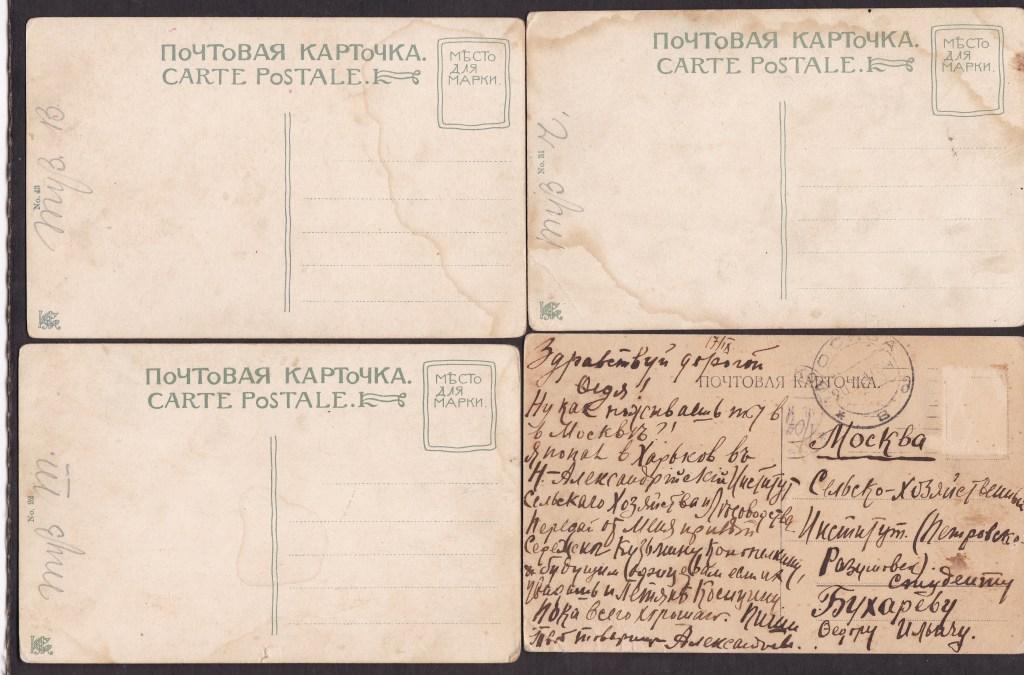 ПОЧТОВАЯ КАРТОЧКА.
CARTE POSTALE.
МѢСТО
ДЛЯ
МАРКИ.
No. 43
ПОЧТОВАЯ КАРТОЧКА.
CARTE POSTALE.
МѢСТО
ДЛЯ
МАРКИ.
No. 31
ПОЧТОВАЯ КАРТОЧКА.
CARTE POSTALE.
МѢСТО
ДЛЯ
МАРКИ.
Здравствуй дорогой
Ѳедя!
Ну как поживаешь ты в
в Москвѣ?!
Я попал в Харьков въ
Н.-Александрійскій Институт
Сельскаго Хозяйства и Лѣсоводства
Передай от меня привѣт
Сережѣ Кузьмину
и будущим офицерам
Пока всего хорошаго. Пиши
Твой товарищ
ПОЧТОВАЯ КАРТОЧКА.
МОСКВА
Москва
Сельско-Хозяйственный
Институт. (Петровско-
Разумовск).
студенту
Бухареву
Ѳедору Ильичу.